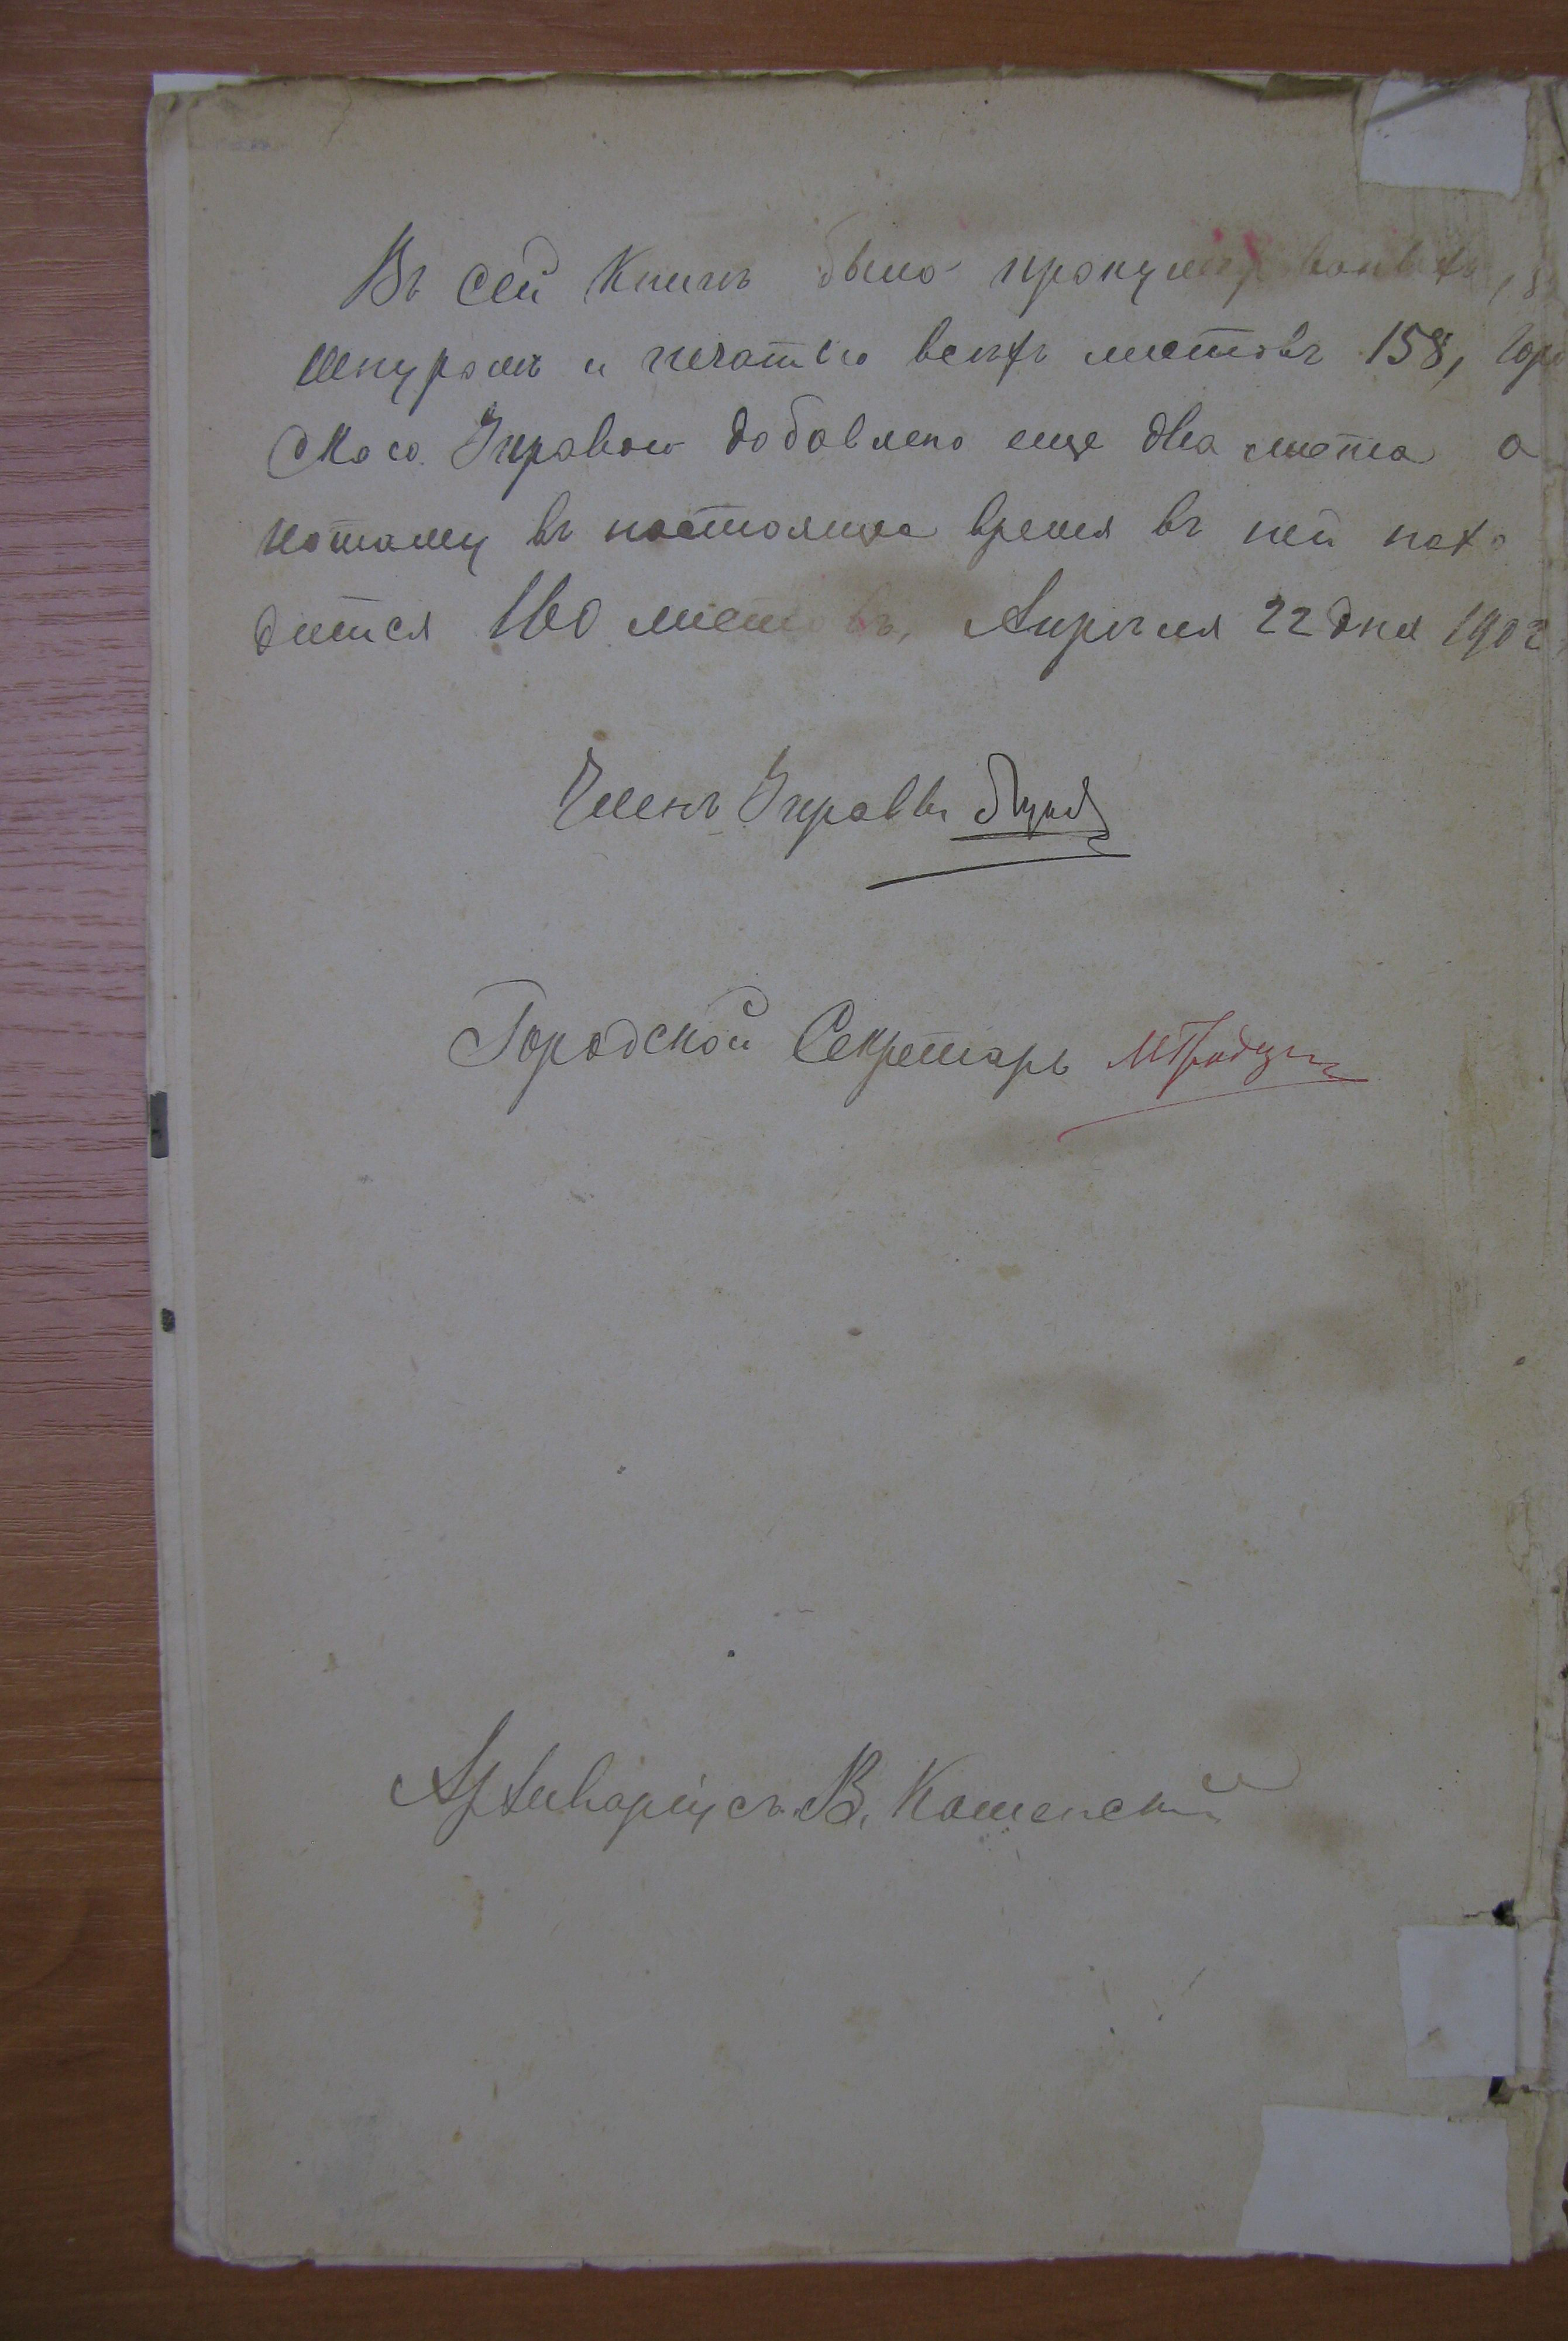 Въ сей книгѣ было пронумерованныхъ, з
шнуромъ и печатью всѣхъ листовъ 158, Горо
скою Управою добавлено еще два листа а
потому въ настоящее время въ ней нахо
дится 160 листовъ, Апрѣля 22 дня 1902
Членъ Управы
Городской Секретарь
Архиваріусъ В. Каменскій